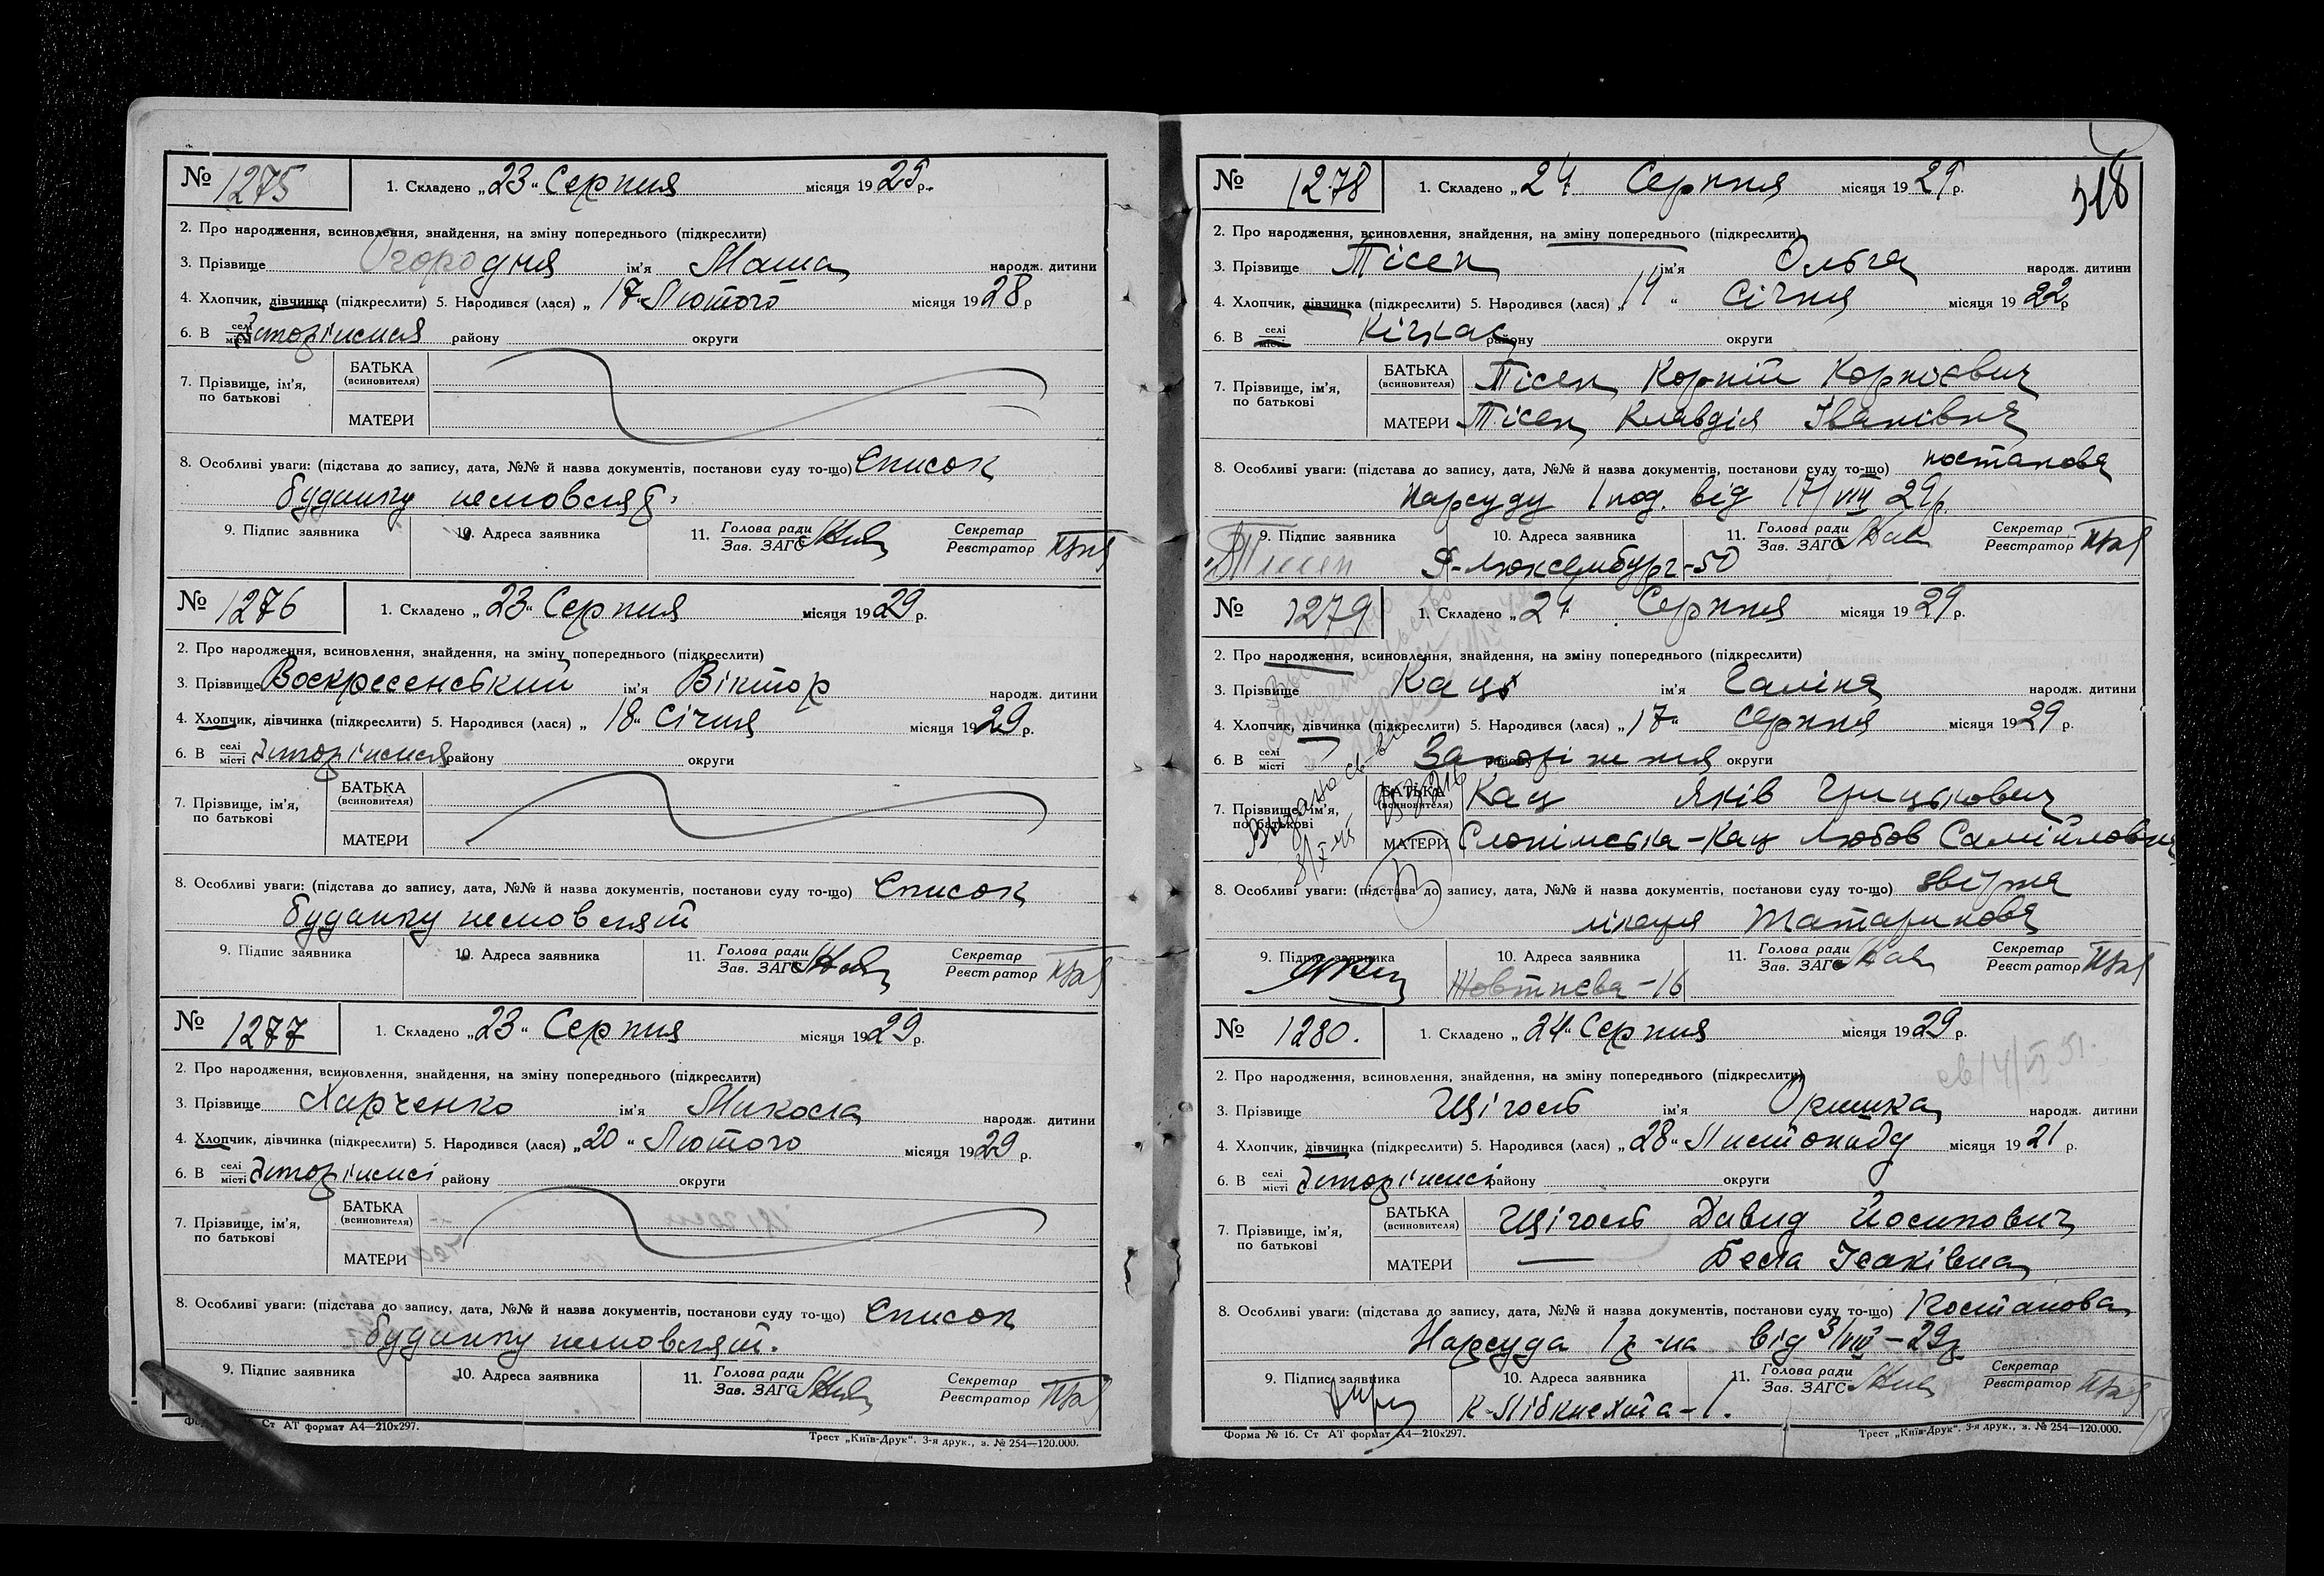 № 1275
1. Складено „23“ Серпня місяця 1929 р.
2. Про народження, всиновлення, знайдення, на зміну попереднього (підкреслити)
3. Прізвище Огородня ім'я Маша народж. дитини
4. Хлопчик, дівчинка (підкреслити) 5. Народився (лася) „17 Лютого місяця 1928 р
6. В селі місті Запоріжжя району округи
7. Прізвище, ім'я, по батькові
БАТЬКА (всиновителя)
МАТЕРИ
8. Особливі уваги: (підстава до запису, дата, №№ й назва документів, постанови суду то-що) Список
будинку немовлят.
9. Підпис заявника 10. Адреса заявника 11. Голова ради Зав. ЗАГС Секретар Реєстратор
№ 1276
1. Складено „23“ Серпня місяця 1929 р.
2. Про народження, всиновлення, знайдення, на зміну попереднього (підкреслити)
3. Прізвище Воскресенський ім'я Віктор народж. дитини
4. Хлопчик, дівчинка (підкреслити) 5. Народився (лася) „18“ Січня місяця 1929 р.
6. В селі місті Запоріжжя району округи
7. Прізвище, ім'я, по батькові
БАТЬКА (всиновителя)
МАТЕРИ
8. Особливі уваги: (підстава до запису, дата, №№ й назва документів, постанови суду то-що) Список
будинку немовлят
9. Підпис заявника 10. Адреса заявника 11. Голова ради Зав. ЗАГС Секретар Реєстратор
№ 1277
1. Складено „23“ Серпня місяця 1929 р.
2. Про народження, всиновлення, знайдення, на зміну попереднього (підкреслити)
3. Прізвище Харченко ім'я Микола народж. дитини
4. Хлопчик, дівчинка (підкреслити) 5. Народився (лася) „20“ Лютого місяця 1929 р.
6. В селі місті Запоріжжі району округи
7. Прізвище, ім'я, по батькові
БАТЬКА (всиновителя)
МАТЕРИ
8. Особливі уваги: (підстава до запису, дата, №№ й назва документів, постанови суду то-що) Список
будинку немовлят.
9. Підпис заявника 10. Адреса заявника 11. Голова ради Зав. ЗАГС Секретар Реєстратор
Ст АТ формат А4—210х297. Трест „Київ-Друк“. 3-я друк., з. № 254—120.000.
318
№ 1278
1. Складено „24 Серпня місяця 1929 р.
2. Про народження, всиновлення, знайдення, на зміну попереднього (підкреслити)
3. Прізвище Тісен ім'я Ольга народж. дитини
4. Хлопчик, дівчинка (підкреслити) 5. Народився (лася) „19“ Січня місяця 1922 р
6. В селі місті Кічкас району округи
7. Прізвище, ім'я, по батькові
БАТЬКА (всиновителя) Тісен Корній Корнієвич
МАТЕРИ Тісен Клавдія Іванівна
8. Особливі уваги: (підстава до запису, дата, №№ й назва документів, постанови суду то-що) постанова
нарсуду від 17/VIII 29р.
9. Підпис заявника 10. Адреса заявника 11. Голова ради Зав. ЗАГС Секретар Реєстратор
Тіссен Р-Люксембург-50
№ 1279
1. Складено „24 Серпня місяця 1929 р.
2. Про народження, всиновлення, знайдення, на зміну попереднього (підкреслити)
3. Прізвище Кац ім'я Галіна народж. дитини
4. Хлопчик, дівчинка (підкреслити) 5. Народився (лася) „17“ Серпня місяця 1929 р.
6. В селі місті Запоріжжя району округи
7. Прізвище, ім'я, по батькові
БАТЬКА (всиновителя) Кац Яків Грицькович
МАТЕРИ Слонімська-Кац Любов Самійловна
8. Особливі уваги: (підстава до запису, дата, №№ й назва документів, постанови суду то-що)
Татаринова
9. Підпис заявника 10. Адреса заявника 11. Голова ради Зав. ЗАГС Секретар Реєстратор
Жовтнева-16
№ 1280.
1. Складено „24“ Серпня місяця 1929 р.
2. Про народження, всиновлення, знайдення, на зміну попереднього (підкреслити)
3. Прізвище Щігось ім'я Оришка народж. дитини
4. Хлопчик, дівчинка (підкреслити) 5. Народився (лася) „28“ Листопаду місяця 1921 р.
6. В селі місті Запоріжжі району округи
7. Прізвище, ім'я, по батькові
БАТЬКА (всиновителя) Щігось Давид Йосипович
МАТЕРИ — Бела Ісаківна
8. Особливі уваги: (підстава до запису, дата, №№ й назва документів, постанови суду то-що) Постанова
Нарсуда 1 р-на від 3/VIII-29р.
9. Підпис заявника 10. Адреса заявника 11. Голова ради Зав. ЗАГС Секретар Реєстратор
К-Лібкнехта-1.
Форма № 16. Ст АТ формат А4—210х297. Трест „Київ-Друк“. 3-я друк., з. № 254—120.000.